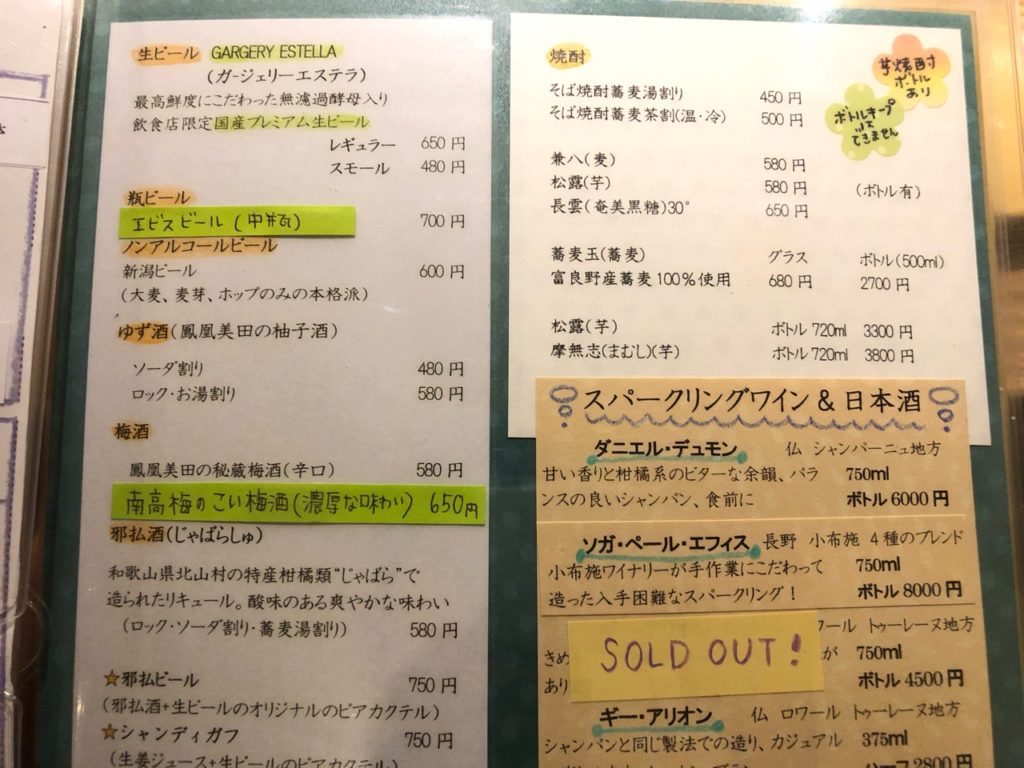 生ビール GARGERY ESTELLA
(ガージェリーエステラ)
最高鮮度にこだわった無濾過酵母入り
飲食店限定国産プレミアム生ビール
レギュラー 650円
スモール 480円
瓶ビール
エビスビール(中瓶) 700円
ノンアルコールビール
新潟ビール 600円
(大麦、麦芽、ホップのみの本格派)
ゆず酒(鳳凰美田の柚子酒)
ソーダ割り 480円
ロック・お湯割り 580円
梅酒
鳳凰美田の秘蔵梅酒(辛口) 580円
南高梅のこい梅酒(濃厚な味わい) 650円
邪払酒(じゃばらしゅ)
和歌山県北山村の特産柑橘類"じゃばら"で
造られたリキュール。酸味のある爽やかな味わい
(ロック・ソーダ割り・蕎麦湯割り) 580円
☆邪払ビール 750円
(邪払酒+生ビールのオリジナルのビアカクテル)
☆シャンディガフ 750円
(生姜ジュース+生ビールのビアカクテル)
焼酎
芋焼酎
ボトル
あり
ボトルキープ
できません
そば焼酎蕎麦湯割り 450円
そば焼酎蕎麦茶割(温・冷) 500円
兼八(麦) 580円
松露(芋) 580円 (ボトル有)
長雲(奄美黒糖)30° 650円
蕎麦玉(蕎麦) グラス ボトル(500ml)
富良野産蕎麦100%使用 680円 2700円
松露(芋) ボトル720ml 3300円
摩無志(まむし)(芋) ボトル720ml 3800円
スパークリングワイン&日本酒
ダニエル・デュモン 仏 シャンパーニュ地方
甘い香りと柑橘系のビターな余韻、バラ 750ml
ンスの良いシャンパン、食前に ボトル6000円
ソガ・ペール・エフィス 長野 小布施 4種のブレンド
小布施ワイナリーが手作業にこだわって 750ml
造った入手困難なスパークリング! ボトル8000円
ワール トゥーレーヌ地方
きめ が 750ml
SOLD OUT!
あり ボトル4500円
ギー・アリオン 仏 ロワール トゥーレーヌ地方
シャンパンと同じ製法での造り、カジュアル 375ml
ハーフ2800円